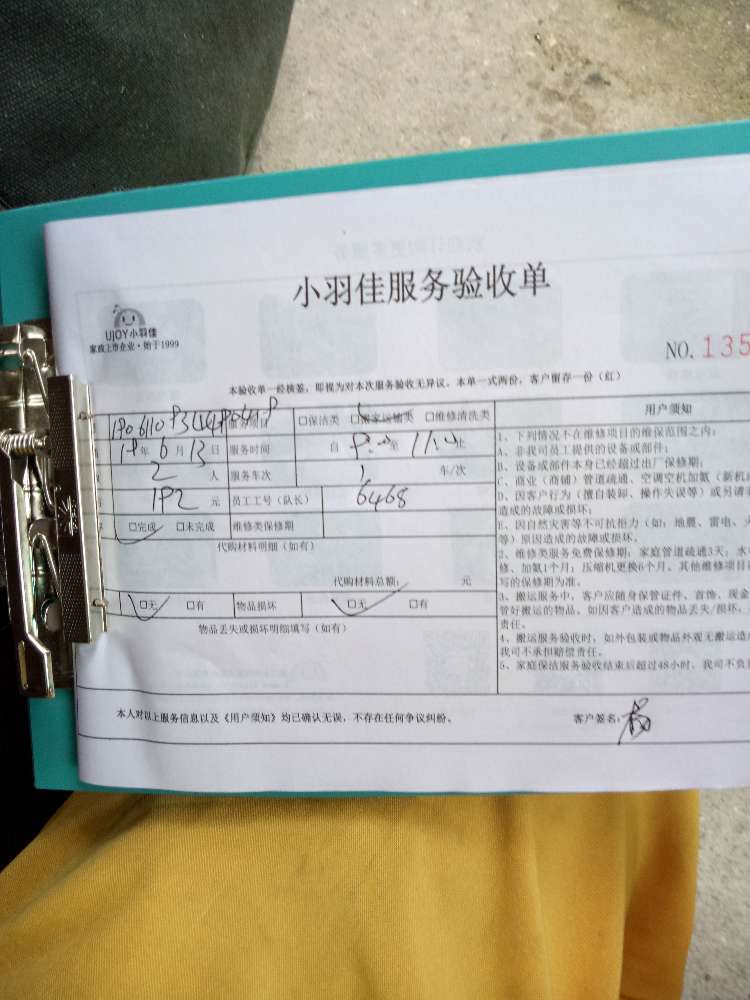 小羽佳服务验收单
UJOY小羽佳
家政上市企业·始于1999
NO. 135
本验收单一经核签,即视为对本次服务验收无异议。本单一式两份,客户留存一份(红)
服务项目 □保洁类 □搬家运输类 □维修清洗类
年 6 月 13 日 服务时间 自 至 11:00 止
2 人 服务车次 1 车/次
元 员工工号(队长) 6468
□完成 □未完成 维修类保修期
代购材料明细(如有)
代购材料总额: 元
□无 □有 物品损坏 □无 □有
物品丢失或损坏明细填写(如有)
用户须知
1、下列情况不在维修项目的维保范围之内:
A、非我司员工提供的设备或部件;
B、设备或部件本身已经超过出厂保修期;
C、商业(商铺)管道疏通、空调空机加氟(新机
D、因客户行为(擅自装卸、操作失误等)或另请
造成的故障或损坏;
E、因自然灾害等不可抗拒力(如:地震、雷电、
等)原因造成的故障或损坏。
2、维修类服务免费保修期:家庭管道疏通3天;水
修、加氟1个月;压缩机更换6个月。其他维修项目
写的保修期为准。
3、搬运服务中,客户应随身保管证件、首饰、现金
管好搬运的物品。如因客户造成的物品丢失/损坏,
责任。
4、搬运服务验收时,如外包装或物品外观无搬运造
我司不承担赔偿责任。
5、家庭保洁服务验收结束后超过48小时,我司不负
本人对以上服务信息以及《用户须知》均已确认无误,不存在任何争议纠纷。 客户签名: